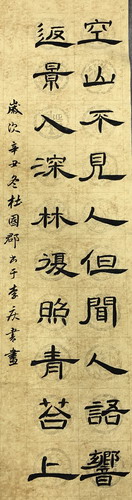 空山不見人但聞人語響
返景入深林復照青苔上
歲次辛丑冬杜國郡書于李庆書畫